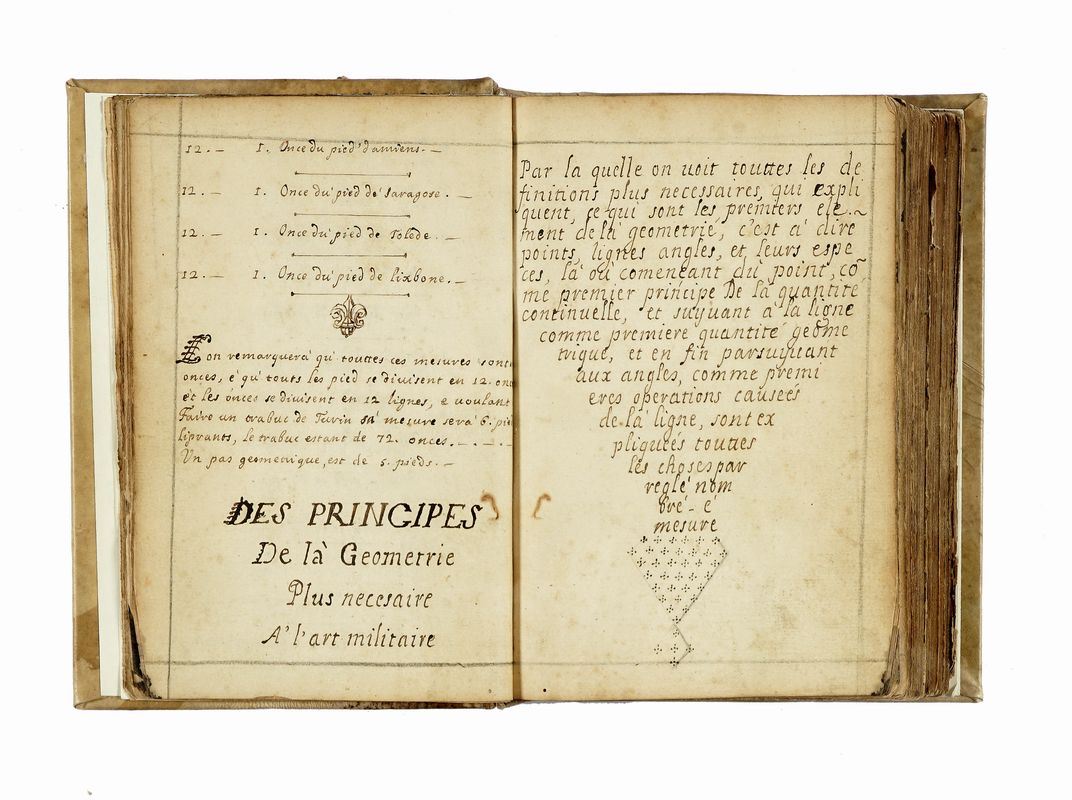 12. – 1. Once du pied d'amiens. –
12. – 1. Once du pied de saragose. –
12. – 1. Once du pied de Tolede. –
12. – 1. Once du pied de lixbone. –
Lon remarquera qu' touttes ces mesures sont
onces, e qu' touts les pied se divisent en 12. onc
et les onces se divisent en 12 lignes, e voulant
Faire un trabuc de Turin sa mesure sera 6. pie
liprants, le trabuc estant de 72. onces. – . – . –
Un pas geometrique, est de 5. pieds. –
DES PRINCIPES
De là Geometrie
Plus necesaire
A' l'art militaire
Par la quelle on voit touttes les de
finitions plus necessaires, qui expli
quent, ce qui sont les premiers ele.~
ment de là geometrie, c'est à dire
points, lignes angles, et leurs espe
ces, là où comencant du point, cõ
me premier principe De là quantite
continuelle, et suyuant a là ligne
comme premiere quantité geome
trique, et en fin parsuiuant
aux angles, comme premi
eres operations causeés
de là ligne, sont ex
pliqueés touttes
les choses par
regle nom
bre - e
mesure